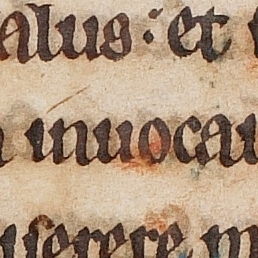 alus: et
inuocau
uerere m